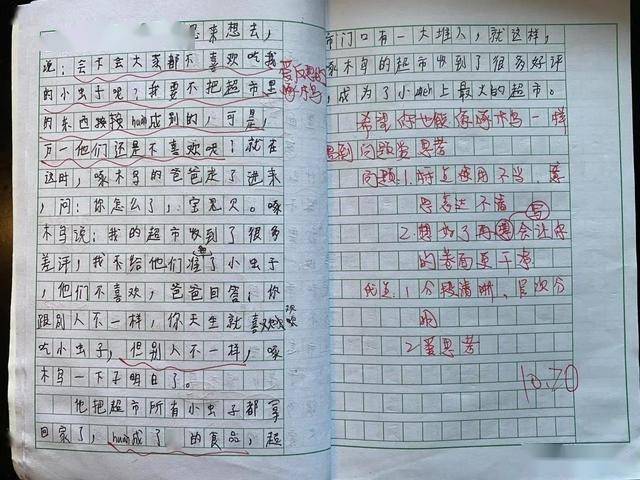 思来想去，
说：会不会大家都不喜欢吃我
的小虫子呢？我要不把超市里
的东西换换huàn成别的，可是，
万一他们还是不喜欢呢？就在
这时，啄木鸟的爸爸走了进来
，问：你怎么了，宝宝贝。啄
木鸟说：我的超市收到了很多
差评，我不给他们准了小虫子
，他们不喜欢，爸爸回答：你
跟别人不一样，你天生就喜欢
吃小虫子，但别人不一样，啄
木鸟一下子明白了。
他把超市所有小虫子都拿
回家了，huàn成了的食品，超
爱反思的
啄木鸟
市门口有一大堆人，就这样，
啄木鸟的超市收到了很多好评
，成为了小镇上最大的超市。
希望你也能像啄木鸟一样
遇到问题爱思考
问题：1.标点使用不当，
思表达不清
2.想好了再写会让你
的卷面更干净
优点：1分段清晰，层次分
明
2爱思考
10.20